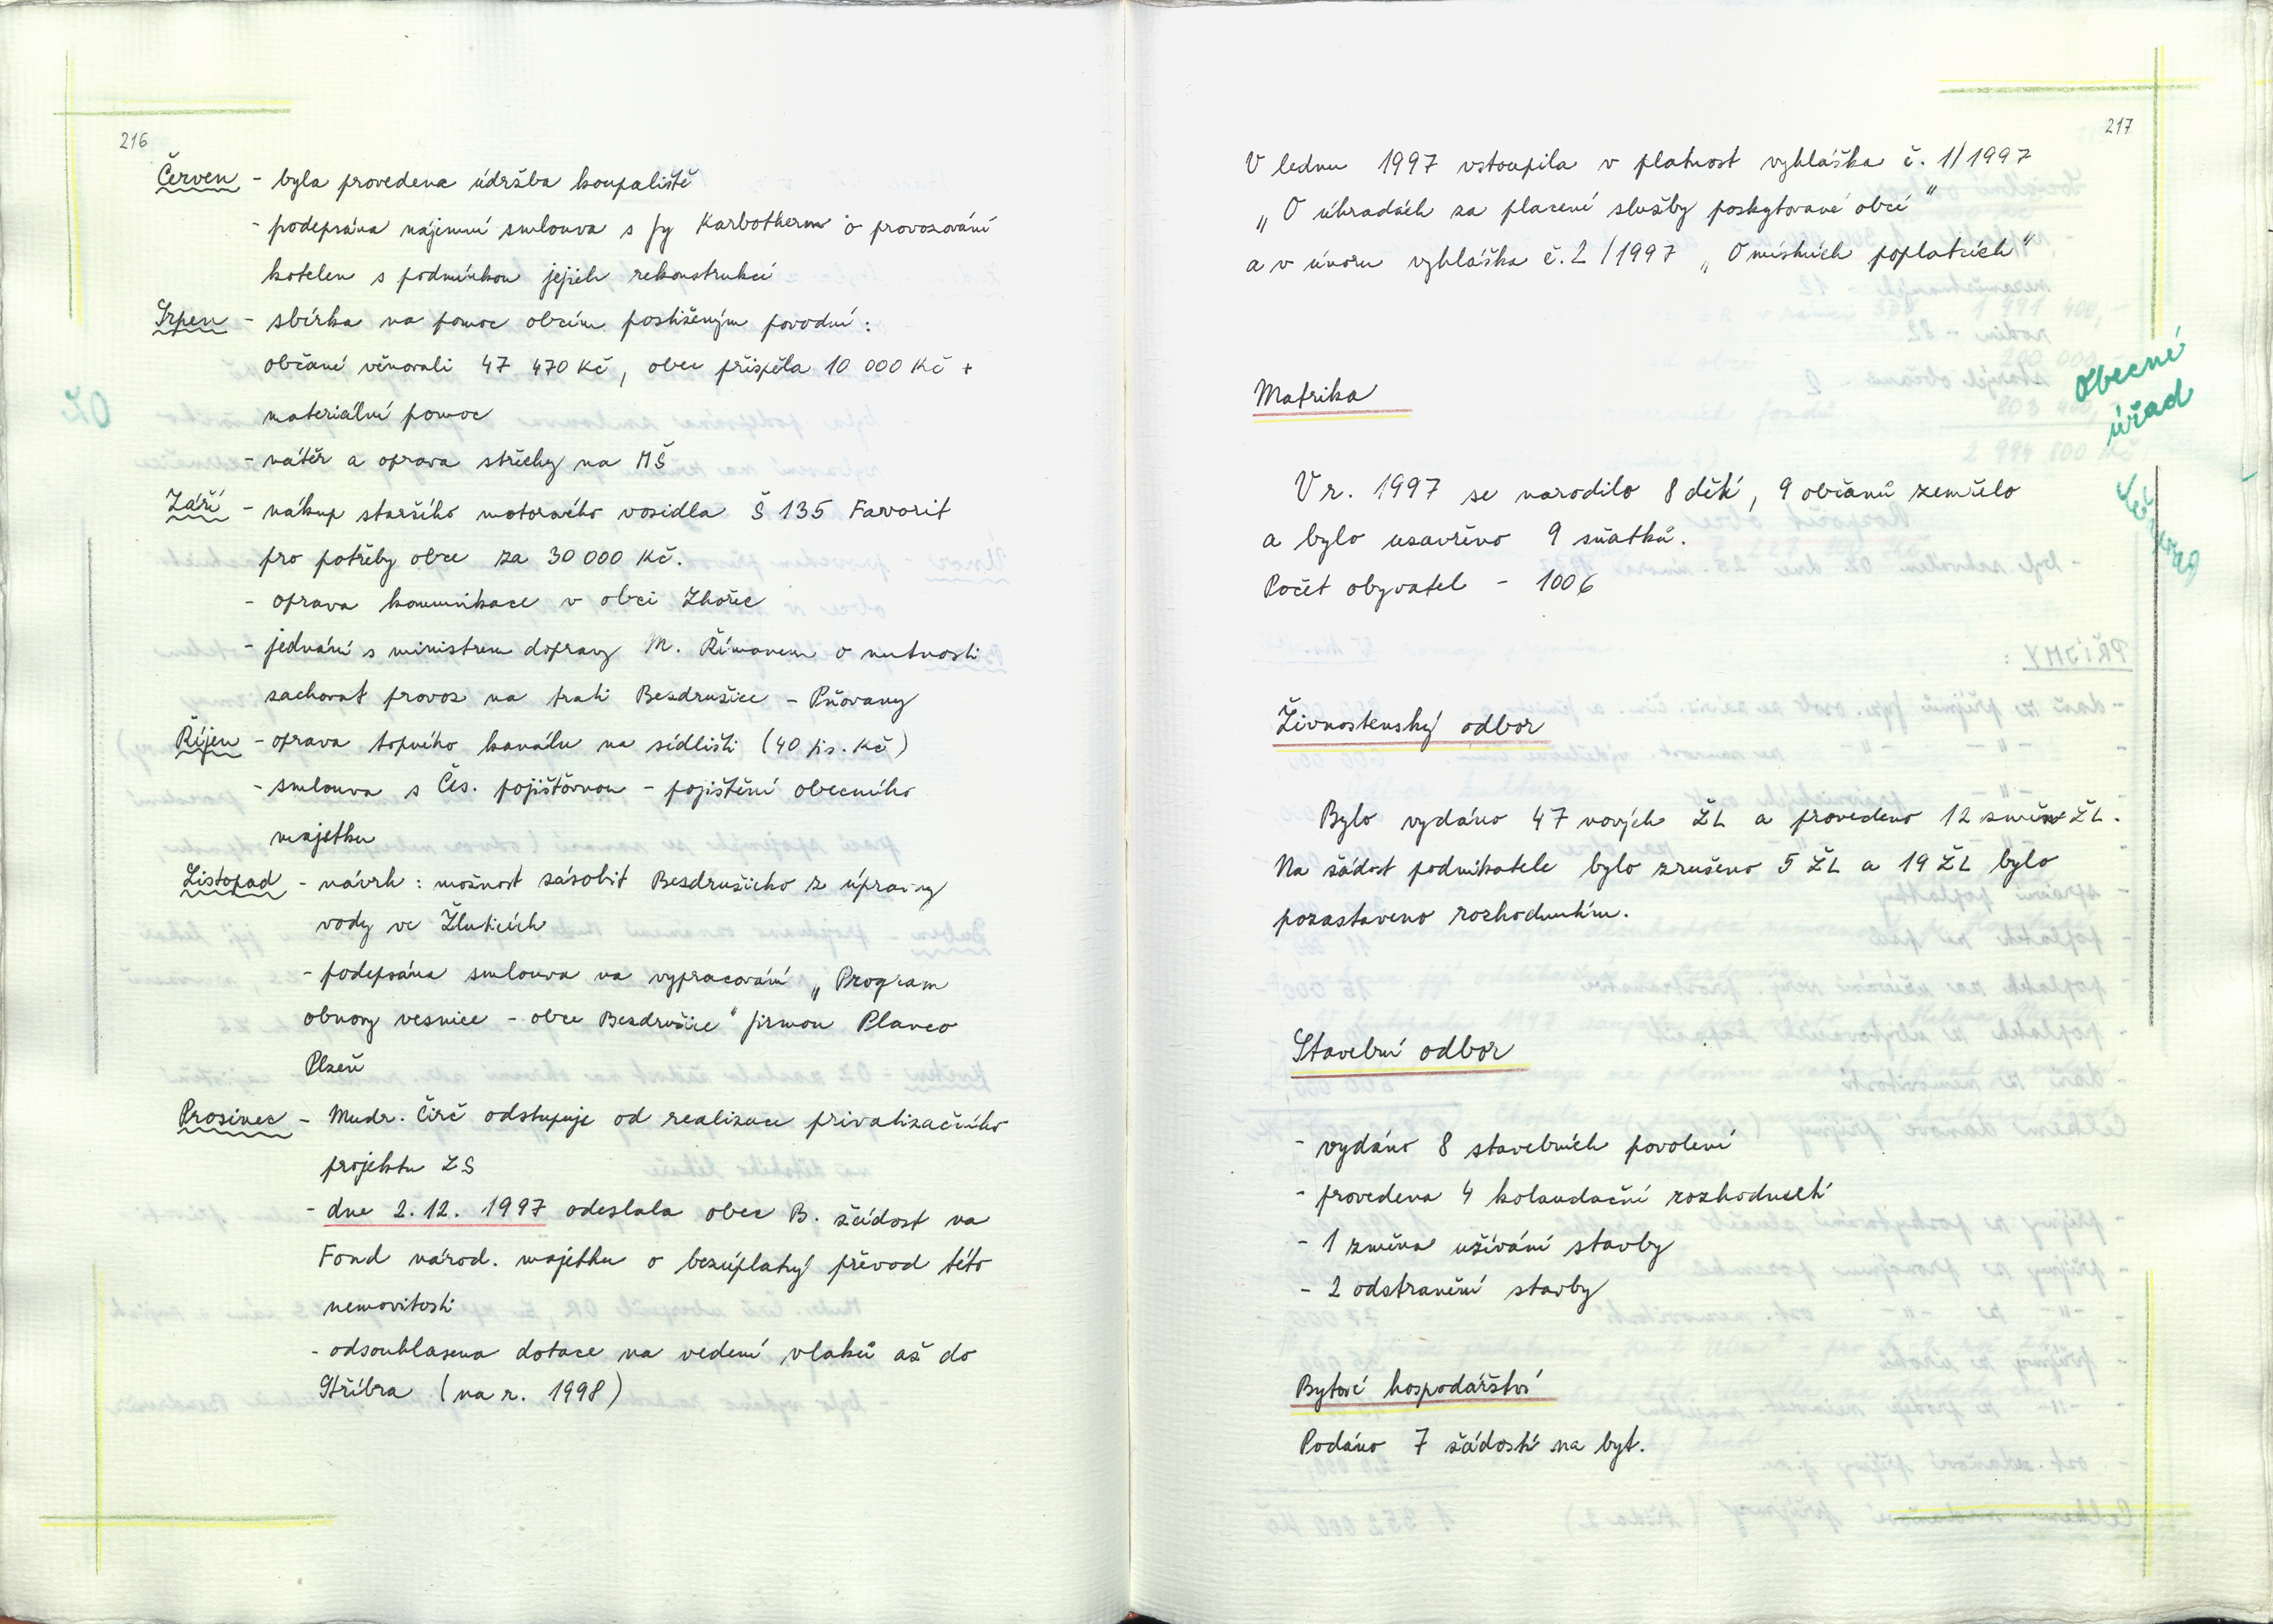 216
Červen - byla provedena údržba koupaliště
- podepsána nájemní smlouva s fy Karbotherm o provozování
kotelen s podmínkou jejich rekonstrukcí
Srpen - sbírka na pomoc obcím postiženým povodní :
občané věnovali 47 470 Kč, obec přispěla 10 000 Kč +
materiální pomoc
- nátěr a oprava střechy na MŠ
Září - nákup staršího motorového vozidla Š 135 Favorit
pro potřeby obce za 30 000 Kč.
- oprava komunikace v obci Zhořec
- jednání s ministrem dopravy M. Římanem o nutnosti
zachovat provoz na trati Bezdružice - Pňovany
Říjen - oprava topného kanálu na sídlišti (40 tis. Kč)
- smlouva s Čes. pojišťovnou - pojištění obecního
majetku
Listopad - návrh : možnost zásobit Bezdružicko z úpravny
vody ve Žluticích
- podepsána smlouva na vypracování „Program
obnovy vesnice - obce Bezdružice" firmou Planco
Plzeň
Prosinec - Mudr. Čirč odstupuje od realizace privatizačního
projektu ZS
- dne 2. 12. 1997 odeslala obec B. žádost na
Fond národ. majetku o bezúplatný převod této
nemovitosti
- odsouhlasena dotace na vedení vlaků až do
Stříbra (na r. 1998)
OZ
217
V lednu 1997 vstoupila v platnost vyhláška č. 1/1997
„O úhradách za placené služby poskytované obcí"
a v únoru vyhláška č. 2/1997 „O místních poplatcích"
Obecní
úřad
Matrika
V r. 1997 se narodilo 8 dětí, 9 občanů zemřelo
a bylo uzavřeno 9 sňatků.
Počet obyvatel - 1006
Živnostenský odbor
Bylo vydáno 47 nových ŽL a provedeno 12 změn ŽL.
Na žádost podnikatele bylo zrušeno 5 ŽL a 19 ŽL bylo
pozastaveno rozhodnutím.
Stavební odbor
- vydáno 8 stavebních povolení
- provedena 4 kolaudační rozhodnutí
- 1 změna užívání stavby
- 2 odstranění stavby
Bytové hospodářství
Podáno 7 žádostí na byt.